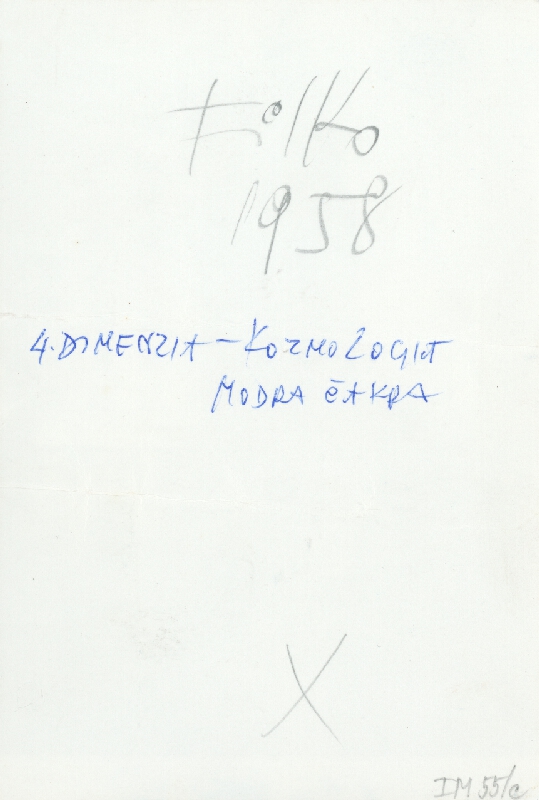 Filko
1958
4. DIMENZIA - KOZMOLOGIA
MODRA ČAKRA
X
IM 55/c